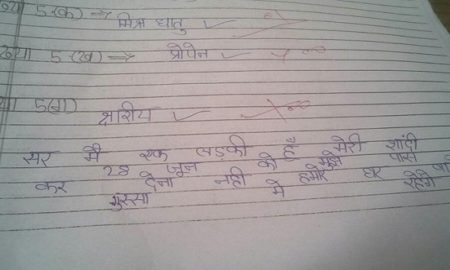 5(क) → मिश्र धातु
5 (ख) → प्रोपेन
5(ग) क्षारीय
सर मैं एक लड़की हूँ मेरी शादी
28 जून को है मुझे पास
कर देना नही हमारे घर
गुस्सा में रहेंगे